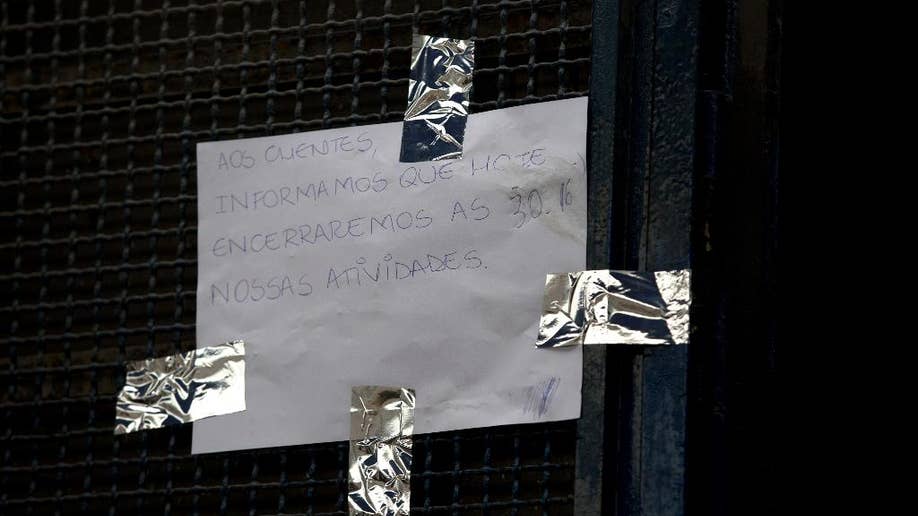 AOS CLIENTES,
INFORMAMOS QUE HOJE
ENCERRAREMOS AS
NOSSAS ATIVIDADES.